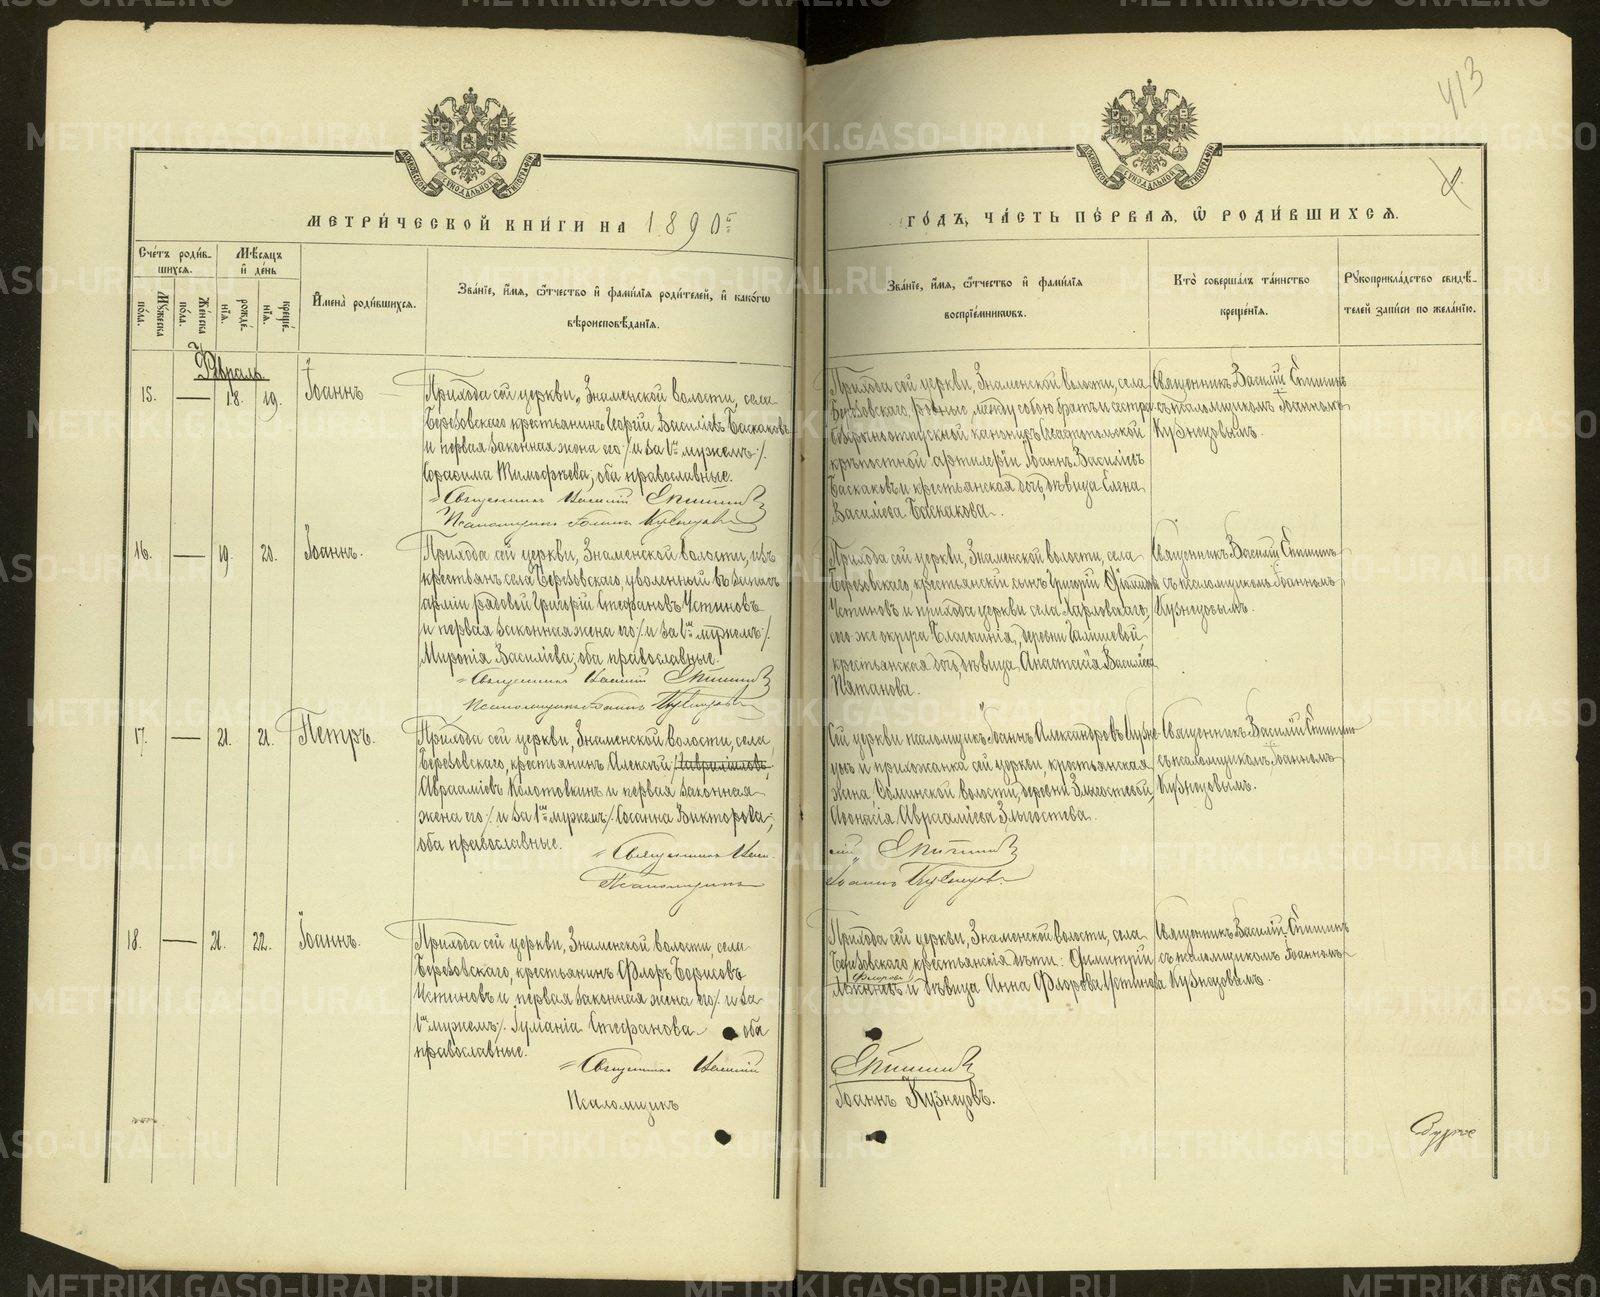 413
4.
МЕТРИ́ЧЕСКОЙ КНИ́ГИ НА 1890й
ГО́ДЪ, ЧА́СТЬ ПЕ́РВАЯ, Ѿ РОДИ́ВШИХСЯ.
Сче́тъ роди́в-
шихся.
Мѣ́сяцъ
и҆ де́нь
Му́жеска
по́ла.
Же́нска
по́ла.
рожде́-
нїя.
креще́-
нїя.
И҆мена̀ роди́вшихся.
Зва́нїе, и҆́мя, ѻ҆́тчество и҆ фами́лїя роди́телей, и҆ како́гѡ
вѣроисповѣ́данїя.
Зва́нїе, и҆́мя, ѻ҆́тчество и҆ фами́лїя
воспрїе́мникѡвъ.
Кто̀ соверша́лъ та́инство
креще́нїя.
Рꙋкоприкла́дство свидѣ́-
телей за́писи по жела́нїю.
Февраль
15. — 18. 19. Іоаннъ
Прихода сей церкви, Знаменской волости, села
Березовскаго крестьянинъ Георгій Василіевъ Баскаковъ
и первая законная жена его /: и за 1мъ мужемъ :/
Тимофѣева; оба православные.
Священникъ Василій Епишинъ
Псаломщикъ Іоаннъ Кузнецовъ
Прихода сей церкви, Знаменской волости, села
Березовскаго, родные между собою братъ и сестра
канониръ Севастопольской
крѣпостной артилеріи Іоаннъ Василіевъ
Баскаковъ и крестьянская дочь, дѣвица Елена
Василіева Баскакова.
Священникъ Василій Епишинъ
съ псаломщикомъ Іоанномъ
Кузнецовымъ.
16. — 19. 20. Іоаннъ.
Прихода сей церкви, Знаменской волости, изъ
крестьянъ села Березовскаго, уволенный въ запасъ
арміи рядовой Григорій Стефановъ Устиновъ
и первая законная жена его /: и за 1мъ мужемъ :/
Миропія Василіева; оба православные.
Священникъ Василій Епишинъ
Псаломщикъ Іоаннъ Кузнецовъ
Прихода сей церкви, Знаменской волости, села
Березовскаго, крестьянскій сынъ Григорій
Устиновъ и прихода церкви села Харловскаго,
сего же округа Благочинія, деревни Галишевой
крестьянская дочь, дѣвица Анастасія Василіева
Пятанова.
Священникъ Василій Епишинъ
съ псаломщикомъ Іоанномъ
Кузнецовымъ.
17. — 21. 21. Петръ.
Прихода сей церкви, Знаменской волости, села
Березовскаго, крестьянинъ Алексѣй
Авраамiевъ Колотовкинъ и первая законная
жена его /: и за 1мъ мужемъ :/ Сосанна Викторова;
оба православные.
Священникъ Васи-
Псаломщикъ
Сей церкви псаломщикъ Іоаннъ Александровъ Кузне-
цовъ и прихожанка сей церкви, крестьянская
жена, волости, деревни Злыгостевой,
Аѳонасія Авраамiева Злыгостева.
лій Епишинъ
Іоаннъ Кузнецовъ.
Священникъ Василій Епишинъ
съ псаломщикомъ Іоанномъ
Кузнецовымъ.
18. — 21. 22. Іоаннъ.
Прихода сей церкви, Знаменской волости, села
Березовскаго, крестьянинъ Флоръ Борисовъ
Устиновъ и первая законная жена его /: и за
1мъ мужемъ :/ Іуліанія Стефанова оба
православные.
Священникъ Василій
Псаломщикъ
Прихода сей церкви, Знаменской волости, села
Березовскаго, крестьянскія дѣти: Димитрій
Флоровъ
и дѣвица Анна Флорова Устинова
Епишинъ
Іоаннъ Кузнецовъ.
Священникъ Василій Епишинъ
съ псаломщикомъ Іоанномъ
Кузнецовымъ.